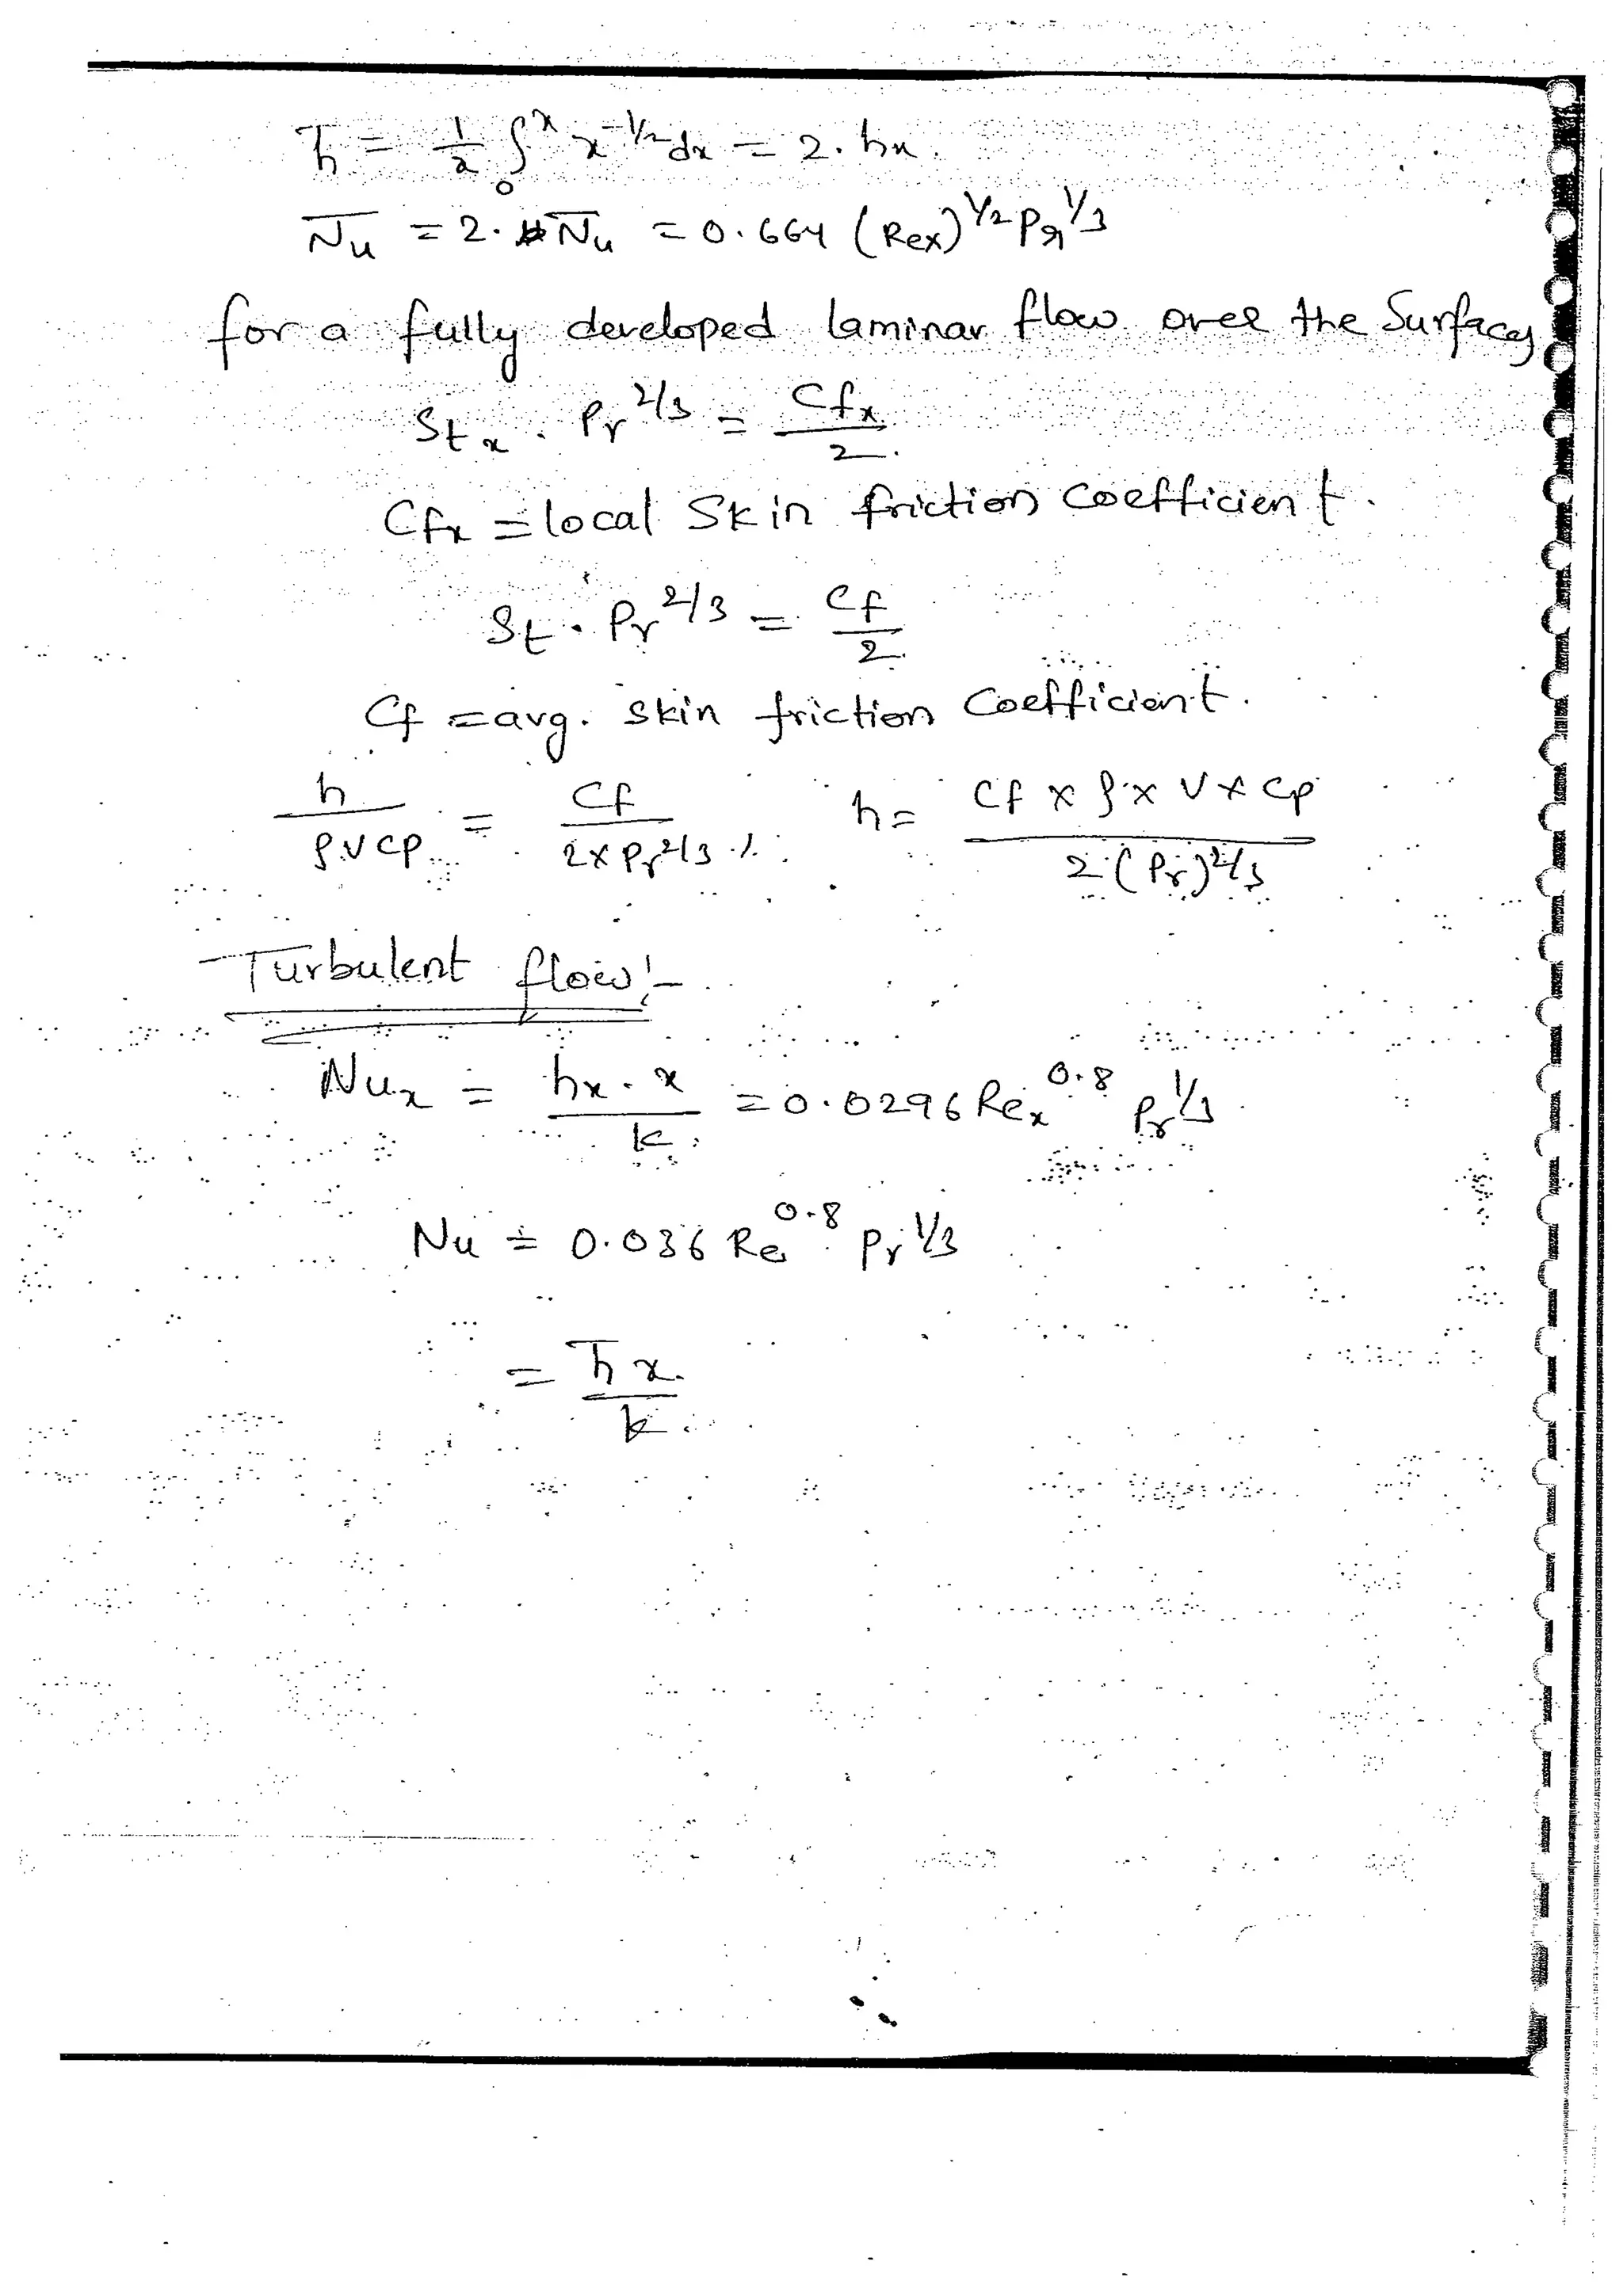 h̄ = 1/x ∫₀ˣ x^-1/2 dx = 2. hx.
N̄u = 2. N̄u = 0.664 (Rex)^1/2 Pr^1/3
for a fully developed laminar flow over the Surfaces
Stx . Pr^2/3 = Cfx/2.
Cfx = local Skin friction Coefficient.
St . Pr^2/3 = Cf/2.
Cf = avg. Skin friction Coefficient.
h/ρ.V Cp = Cf/2 x Pr^2/3 h = Cf x ρ x V x Cp/2 (Pr)^2/3
Turbulent flow:-
Nux = hx . x/k = 0.0296 Rex^0.8 Pr^1/3
Nu = 0.036 Re^0.8 Pr^1/3
= h̄ x/k